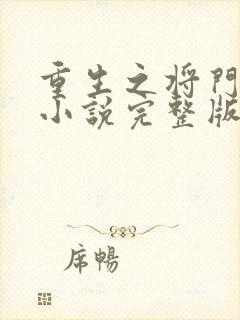 重生之将門
小說完整版
席暢